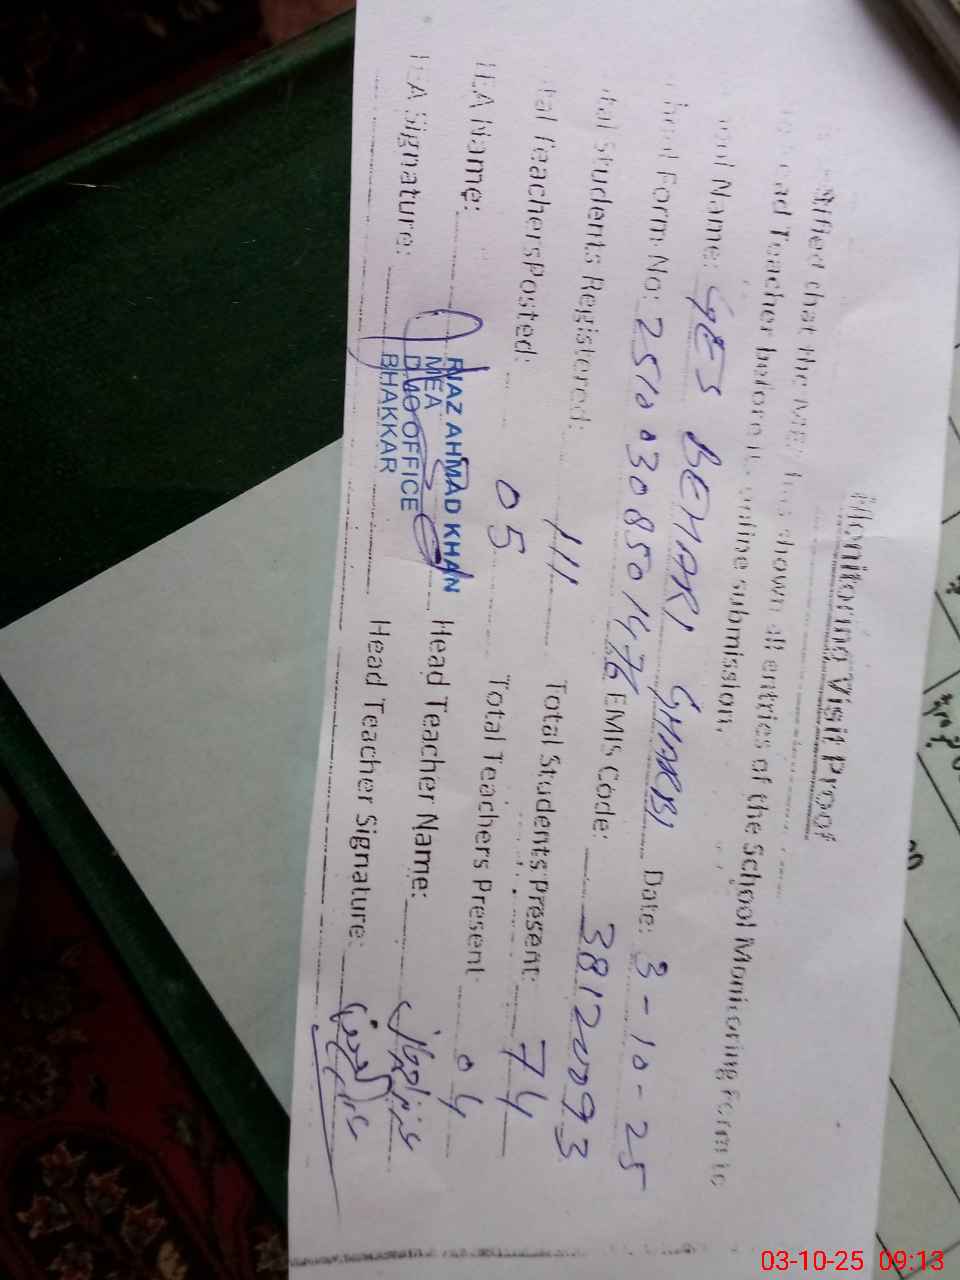 Monitoring Visit Proof
tified that the MEA has shown all entries of the School Monitoring Form to
ead Teacher before its online submission.
ool Name: GES BEHARI GHARBI Date: 3-10-25
Form No: 25100308501476 EMIS Code: 38120093
tal Students Registered: 111 Total Students Present: 74
tal Teachers Posted: 05 Total Teachers Present 04
MEA Name: Head Teacher Name:
MEA Signature: Head Teacher Signature:
NIAZ AHMAD KHAN
MEA
DMO OFFICE
BHAKKAR
03-10-25 09:13